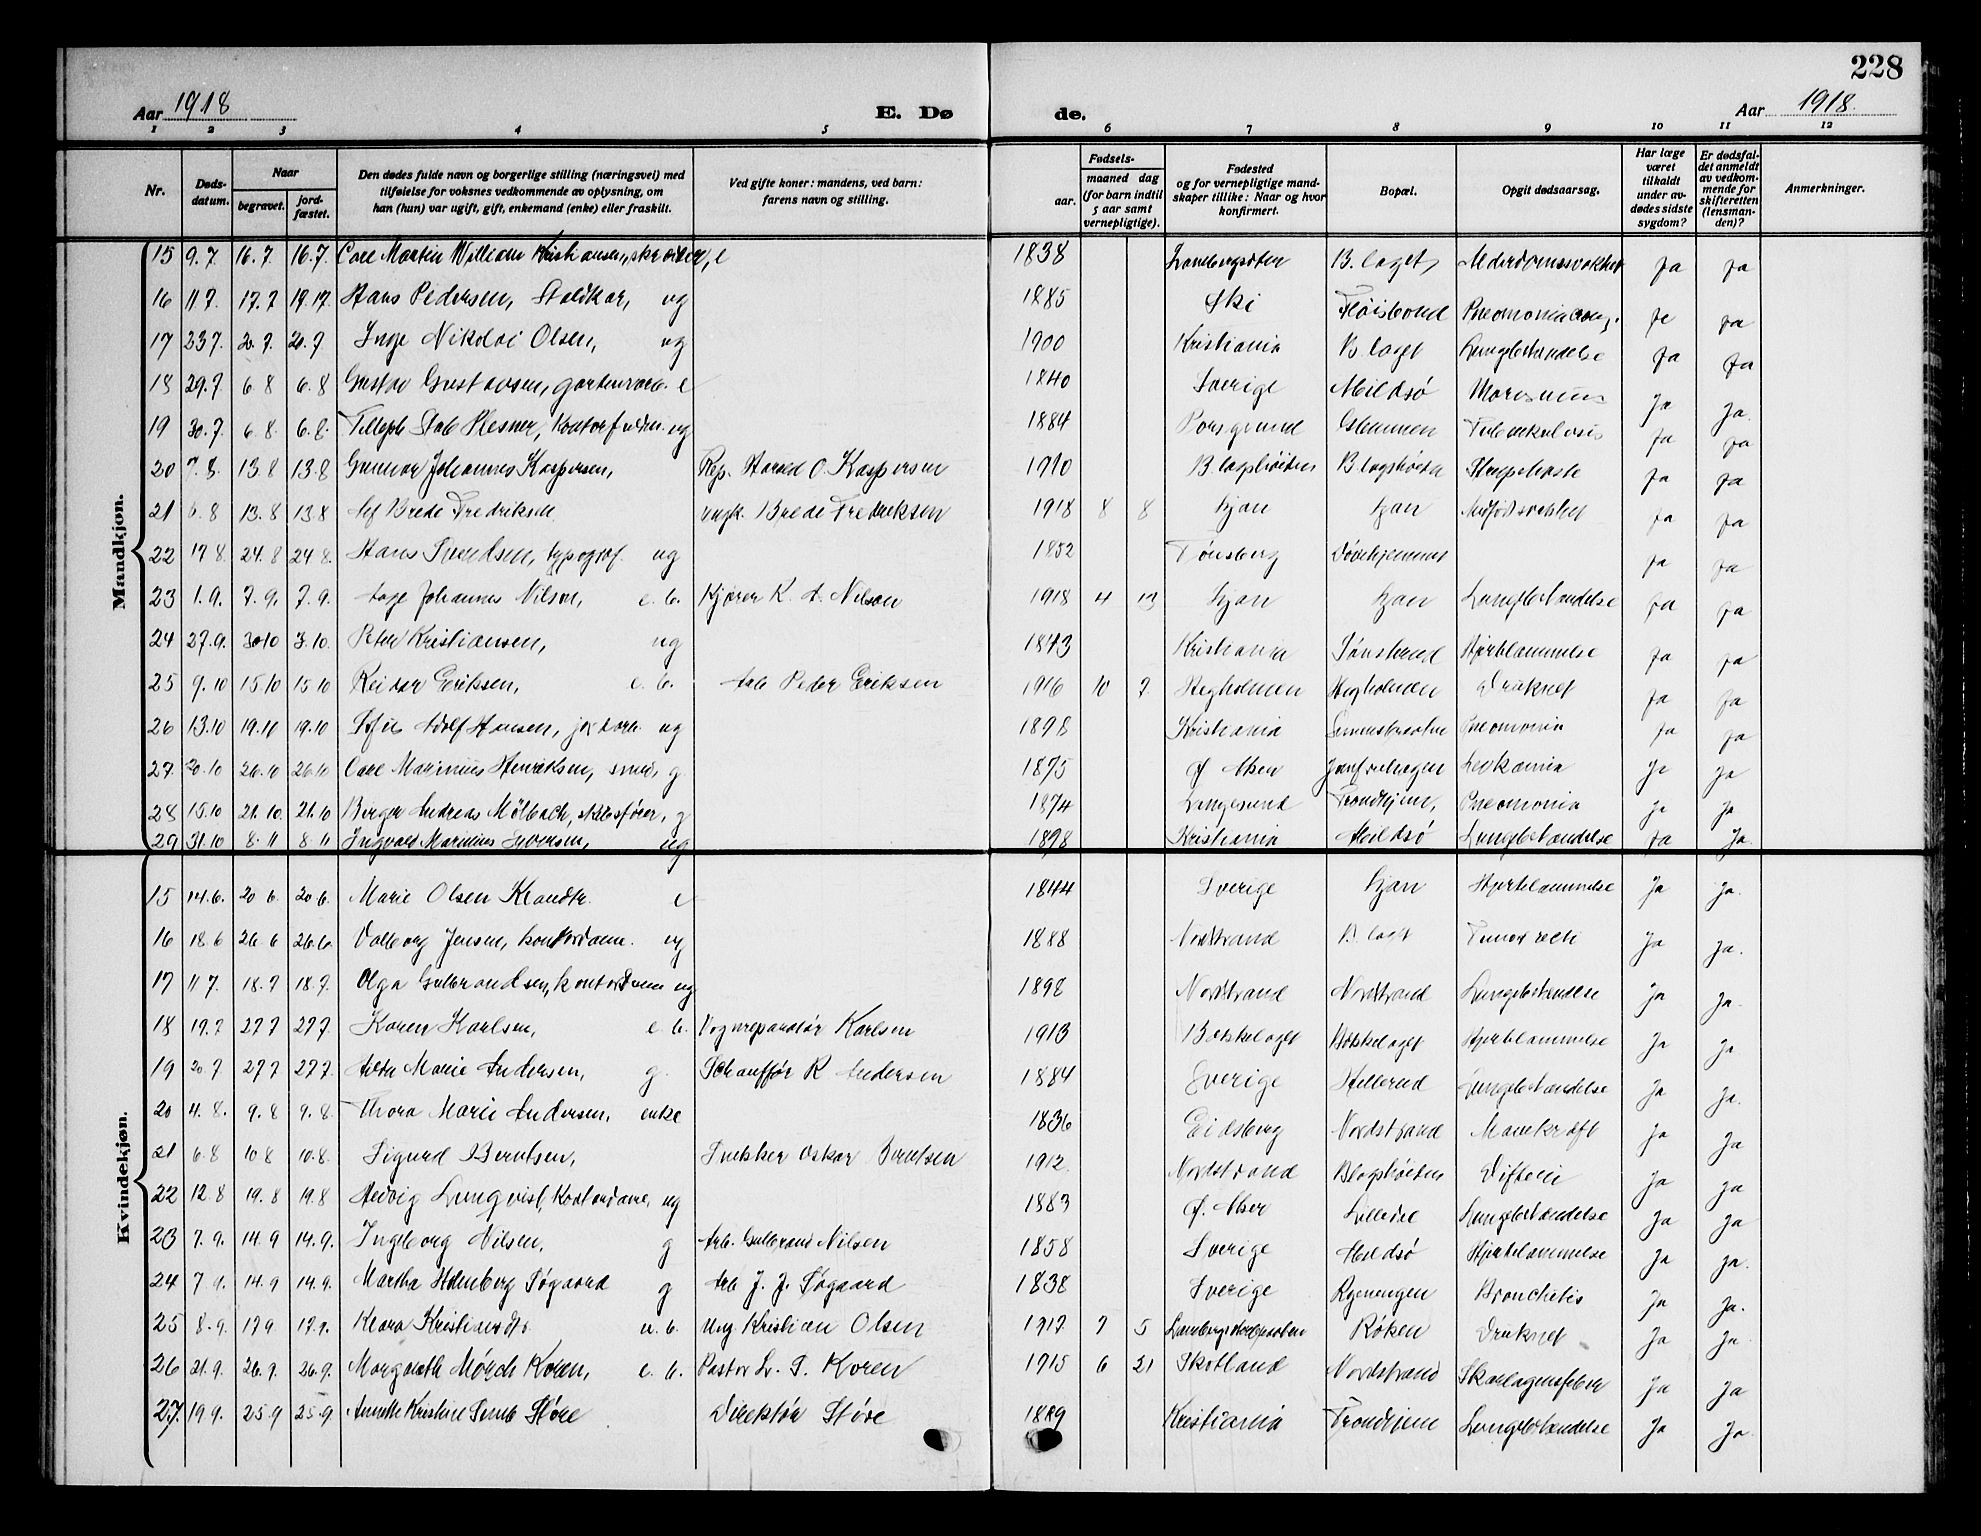 228
Aar 1918 E. Døde. Aar 1918.
1 2 3 4 5 6 7 8 9 10 11 12
Nr. Døds-datum. Naar begravet. jord-fæstet. Den dødes fulde navn og borgerlige stilling (næringsvei) med tilføielse for voksnes vedkommende av oplysning, om han (hun) var ugift, gift, enkemand (enke) eller fraskilt. Ved gifte koner: mandens, ved barn: farens navn og stilling. Fødsels- aar. maaned dag (for barn indtil 5 aar samt vernepligtige). Fødested og for vernepligtige mandskaper tillike: Naar og hvor konfirmert. Bopæl. Opgit dødsaarsag. Har læge været tilkaldt under avdødes sidste sygdom? Er dødsfaldet anmeldt av vedkommende for skifteretten (lensmanden)? Anmerkninger.
Mandkjøn.
15 9.7 16.7 16.7. Carl Martin William Kristiansen, skrædder, e 1838 B. laget, Alderdomssvakhet ja ja
16 11 7. 17.7 17. Hans Pedersen, ug 1885 Ski Fløisbond ja ja
17 23 7. Inge Nikolai Olsen, ug 1900 Kristiania B. laget Lungebetændelse ja ja
18 29.7 6.8 6.8 Gustav Gustavsen, e 1840 Sverige Mildsø Marasmus Ja Ja.
19 30.7 6.8. 6.8. ug 1884 Porsgrund Tuberkulosis ja ja
20 13 8 13.8 Gunnar Johannes Kaspersen, Rep. Harald O. Kaspersen 1910 B. lagshøiden B. lagshøiden Strupehoste ja ja
21 6.8 13.8 13.8 Alf Brede Fredriksen Brede Fredriksen 1918 8 8 Ljan Ljan Medfødt svakhet ja ja
22 17 8. 24.8 24 8. Hans Svendsen, typograf. ug 1852 Tønsberg Døvehjemmet ja ja
23 1.9. 7.9. 7.9. Aage Johannes Nilsen, e. b. Kjører K. A. Nilsen 1918 4 13 Ljan Ljan Lungebetændelse ja ja
24 27.9. 3.10 3.10. Peter Kristiansen, ug 1843 Kristiania Hjertelammelse ja ja
25 9.10 15 10 15 10 Reidar Eriksen, e. b. Arb Peder Eriksen 1916 10 7. Hegholmen Hegholmen Druknet ja ja
26 13.10 19.10 19.10 Adolf Hansen, ug 1898 Kristiania Pneomonia ja ja
27. 20.10 26.10 26.10 Carl Marinius Henriksen, smed, g. 1875 Ø Aker Leukæmia Ja Ja
28 15.10 21.10. 21.10 Birger Andreas Mølbach, skibsfører, g 1874 Langesund Trondhjem, Pneomonia Ja Ja
29 31.10 8.11 8.11 Ingvald Marinius Iversen, ug 1898 Kristiania Hildsø Lungebetændelse ja Ja.
Kvindekjøn.
15 14.6. 20 6. 20 6. Marie Olsen e 1844 Sverige Ljan Hjertelammelse Ja Ja.
16 18.6 26.6 26.6. Valborg Jensen, kontordame. ug 1888 Nordstrand B. laget Ja Ja.
17 11 7. 18.7 18.7. Olga Gulbrandsen, kontordame ug 1898 Nordstrand Nordstrand Lungebetændelse Ja Ja.
18 19.7 27 7 27 7. Karen Karlsen, e. b. Vognreparatør Karlsen 1913 Bækkelaget Bækkelaget Hjertelammelse Ja Ja
19 20 7 27 7 27 7. Marie Andersen, g. Schauffør R Andersen 1884 Sverige Hellerud Lungebetændelse Ja Ja.
20 4.8. 9.8 9.8. Thora Marie Andersen, enke 1836 Eidsberg Nordstrand Mavekræft Ja Ja
21 6.8 10 8 10.8. Sigurd Berntsen, Snekker Oskar Berntsen 1912. Nordstrand B lagshøiden Difteri Ja Ja
22 12.8 19.8 19.8 Hedvig Lungqvist, Kontordame, ug 1883 Ø. Aker Lungebetændelse Ja Ja
23 7.9. 14.9 14.9. Ingeborg Nilsen, g Arb. Gulbrand Nilsen 1858 Sverige Hildsø Hjertelammelse Ja Ja.
24 7.9. 14.9 14.9. Martha Holmberg Søgaard g Arb J. J. Søgaard 1838 Sverige Ryenengen Bronchitis Ja Ja.
25 8.9. 17 9. 17.9. Klara Kristiansdtr u. b. Ung. Kristian Olsen 1917 7 5 Røken Druknet Ja Ja.
26 21.9. 26.9. 26.9. Margarethe Mørch Koren, e. b. Pastor L. S. Koren 1915 6 21 Skotland Nordstrand Skarlagensfeber Ja Ja
27. 19 9. 25.9 25.9 Annette Kristine Støre Direktør Støre 1889 Kristiania Trondhjem Lungebetændelse Ja Ja.